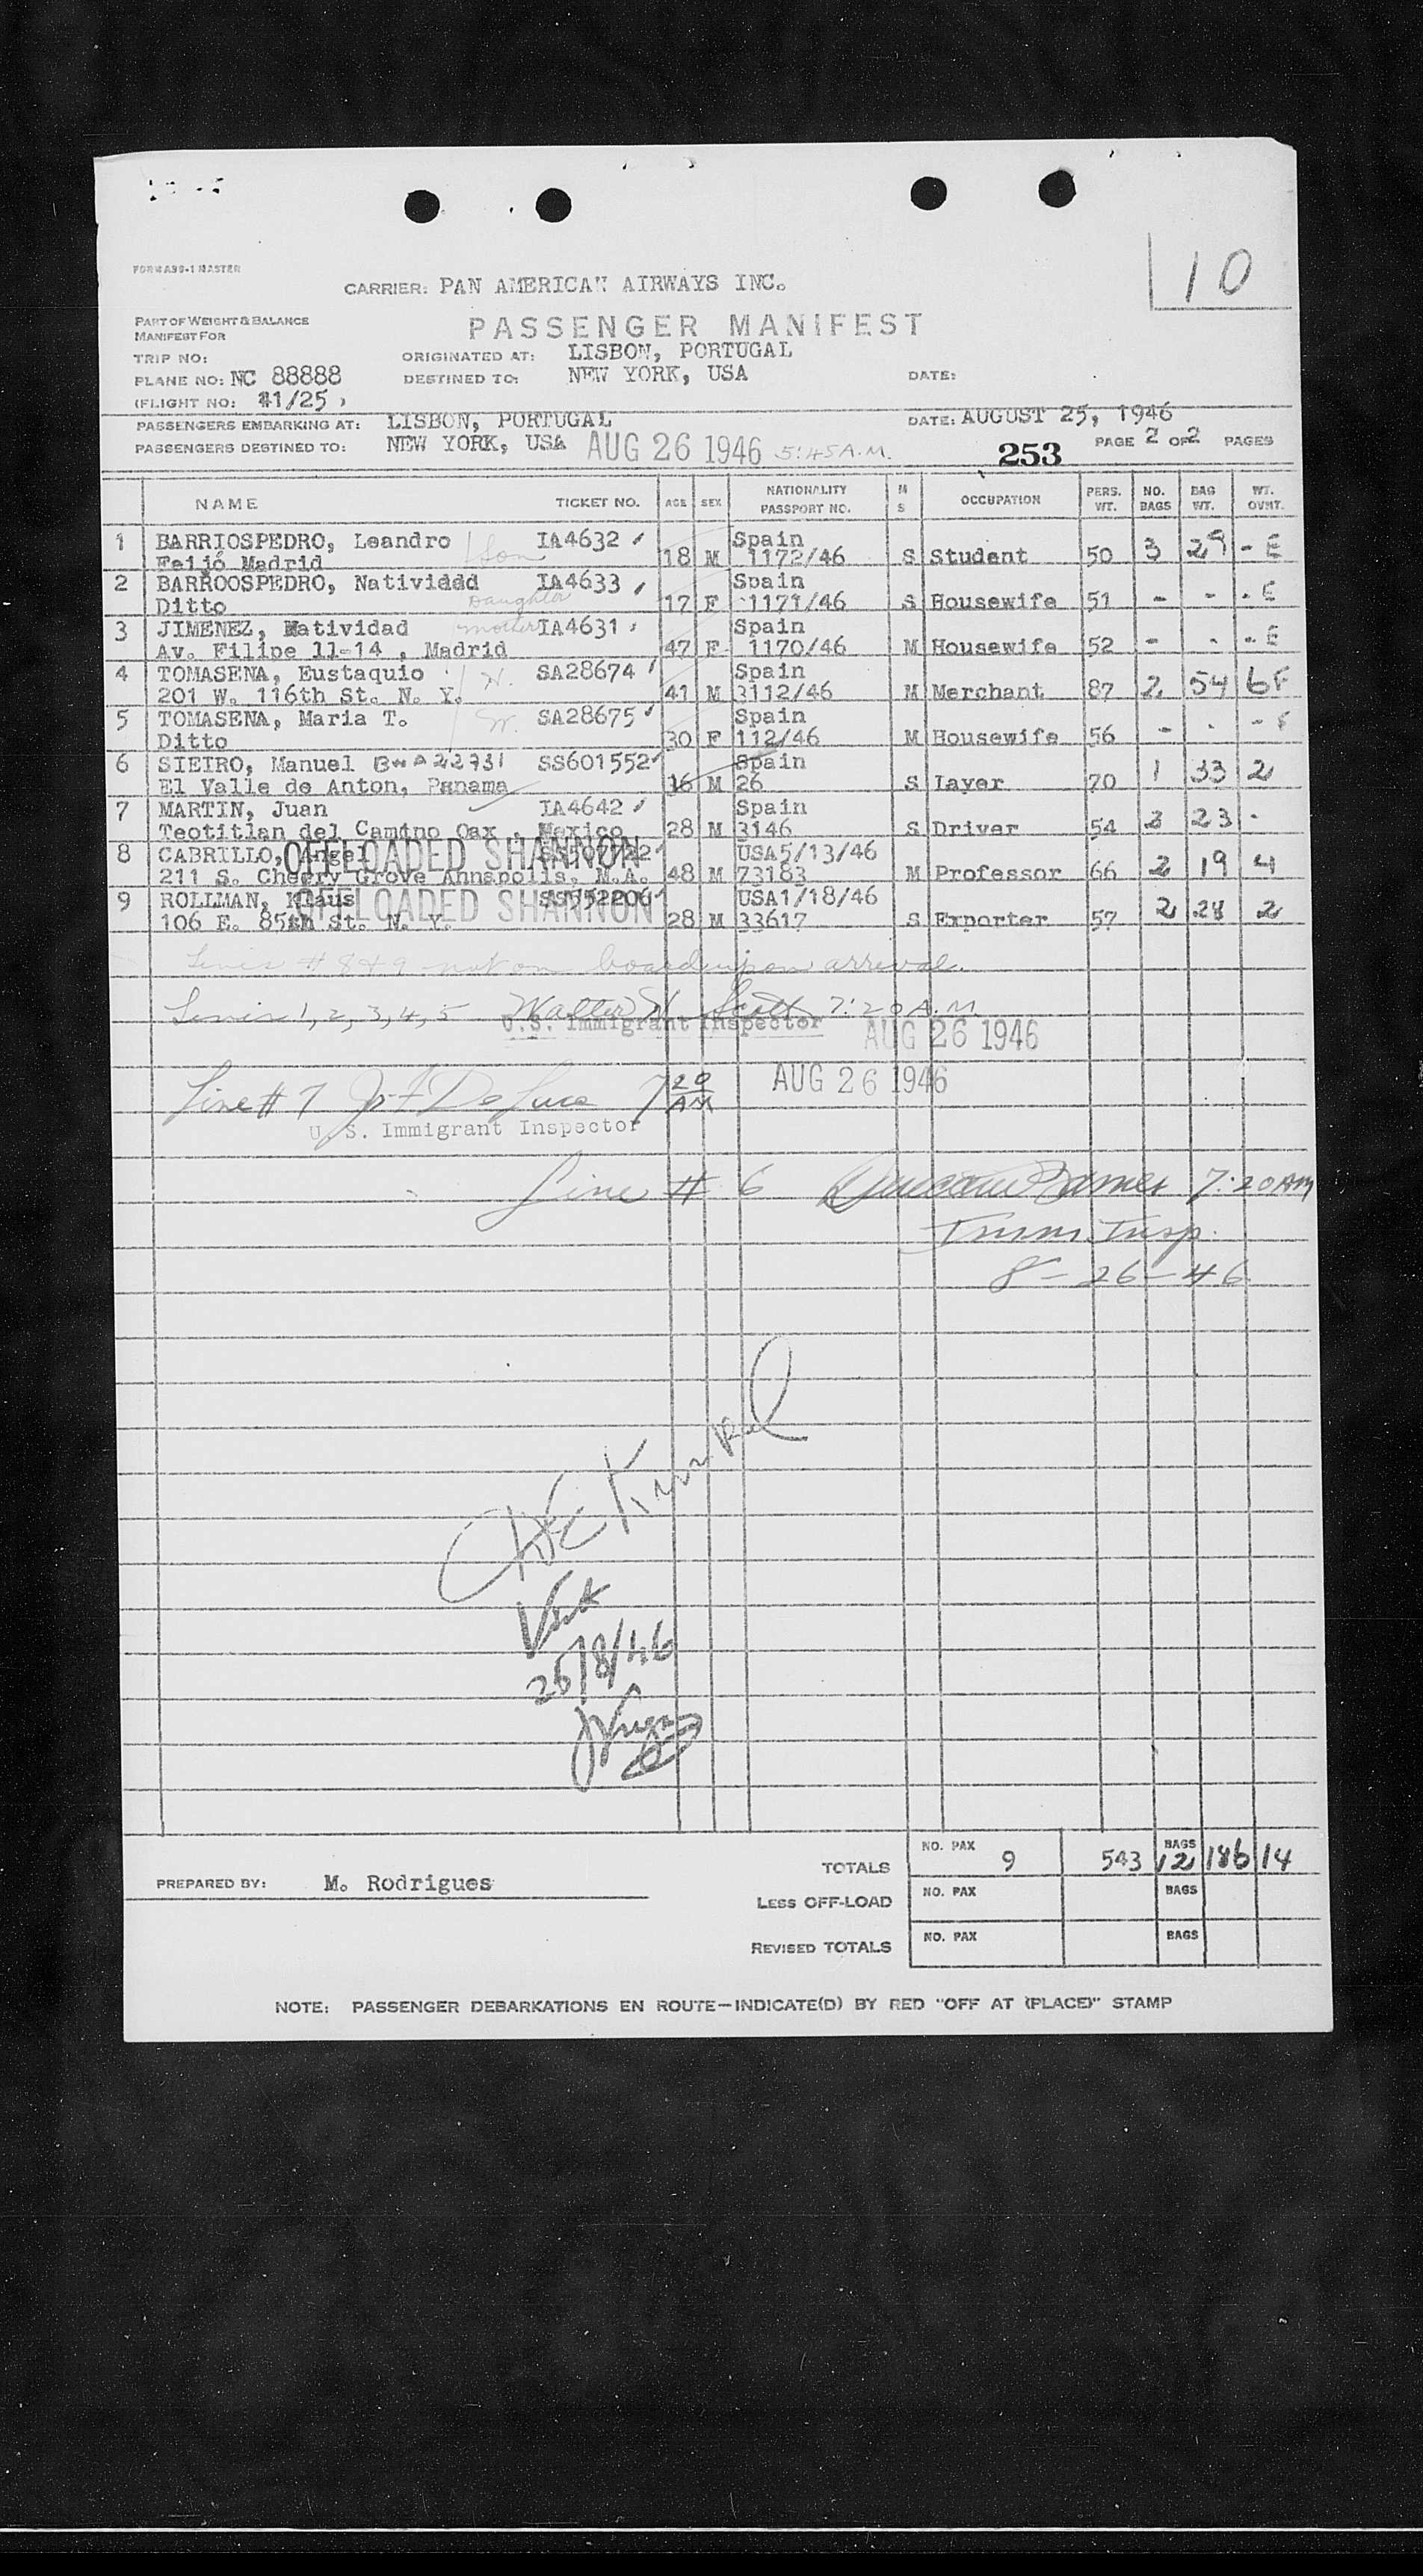 10
FORM A39-1 MASTER
CARRIER: PAN AMERICAN AIRWAYS INC.
PART OF WEIGHT & BALANCE
MANIFEST FOR
PASSENGER MANIFEST
TRIP NO:
ORIGINATED AT: LISBON, PORTUGAL
PLANE NO: NC 88888
DESTINED TO: NEW YORK, USA
DATE:
(FLIGHT NO: 11/25 )
PASSENGERS EMBARKING AT: LISBON, PORTUGAL
DATE: AUGUST 25, 1946
PASSENGERS DESTINED TO: NEW YORK, USA AUG 26 1946 5:45 A.M.
253 PAGE 2 OF 2 PAGES
NAME TICKET NO. AGE SEX NATIONALITY PASSPORT NO. M S OCCUPATION PERS. WT. NO. BAGS BAG WT. WT. OVWT.
1 BARRIOSPEDRO, Leandro Son IA4632 Spain
Feijó Madrid 18 M 1172/46 S Student 50 3 29 - E
2 BARROOSPEDRO, Natividad IA4633 Spain
Ditto Daughter 17 F 1171/46 S Housewife 51 - - - E
3 JIMENEZ, Natividad mother IA4631 Spain
Av. Filipe 11-14 , Madrid 47 F 1170/46 M Housewife 52 - - - E
4 TOMASENA, Eustaquio H. SA28674 Spain
201 W. 116th St. N. Y. 41 M 3112/46 M Merchant 87 2 54 6F
5 TOMASENA, Maria T. W. SA28675 Spain
Ditto 30 F 112/46 M Housewife 56 - - -
6 SIEIRO, Manuel SS601552 Spain
El Valle de Anton, Panama 16 M 26 S Layer 70 1 33 2
7 MARTIN, Juan IA4642 Spain
Teotitlan del Camino Oax , Mexico 28 M 3146 S Driver 54 2 23 -
8 CABRILLO, Angel OFFLOADED SHANNON USA5/13/46
211 S. Cherry Grove Annapolis, M.A. 48 M 73183 M Professor 66 2 19 4
9 ROLLMAN, Klaus OFFLOADED SHANNON SS752206 USA1/18/46
106 E. 85th St. N. Y. 28 M 33617 S Exporter 57 2 28 2
Lines # 8 & 9 not on board upon arrival.
Lines 1, 2, 3, 4, 5 Walter H Scott 7:20 A.M
U.S. Immigrant Inspector AUG 26 1946
Line # 7 De Luca 7 20 AM AUG 26 1946
U. S. Immigrant Inspector
Line # 6 7:20 AM
Imm. Insp.
8-26-46
TOTALS NO. PAX 9 543 BAGS 12 186 14
PREPARED BY: M. Rodrigues
LESS OFF-LOAD NO. PAX BAGS
REVISED TOTALS NO. PAX BAGS
NOTE: PASSENGER DEBARKATIONS EN ROUTE—INDICATE(D) BY RED "OFF AT (PLACE)" STAMP